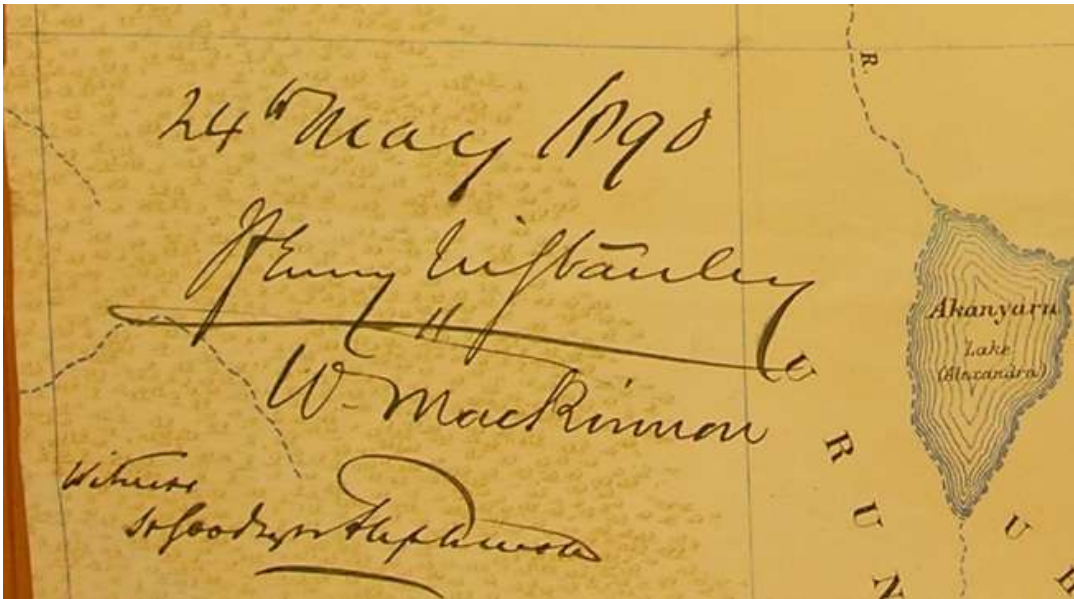 24th May 1890
Henry M Stanley
W. Mackinnon
Witness
R.
Akanyaru
Lake
(Alexandra)
U R U N
U